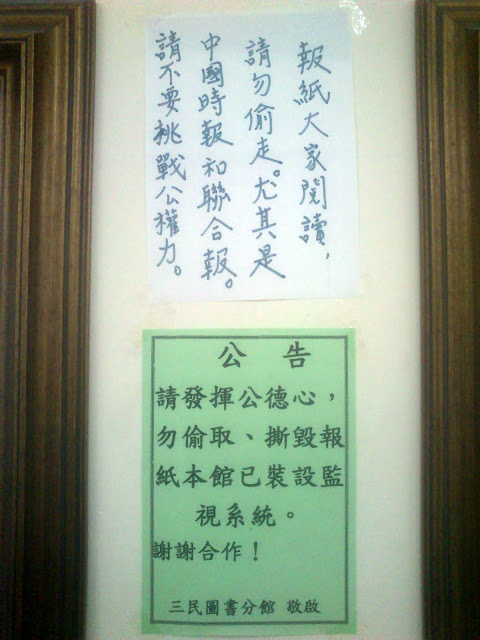 報紙大家閱讀，
請勿偷走。尤其是
中國時報和聯合報。
請不要挑戰公權力。
公告
請發揮公德心，
勿偷取、撕毀報
紙本館已裝設監
視系統。
謝謝合作！
三民圖書分館 敬啟